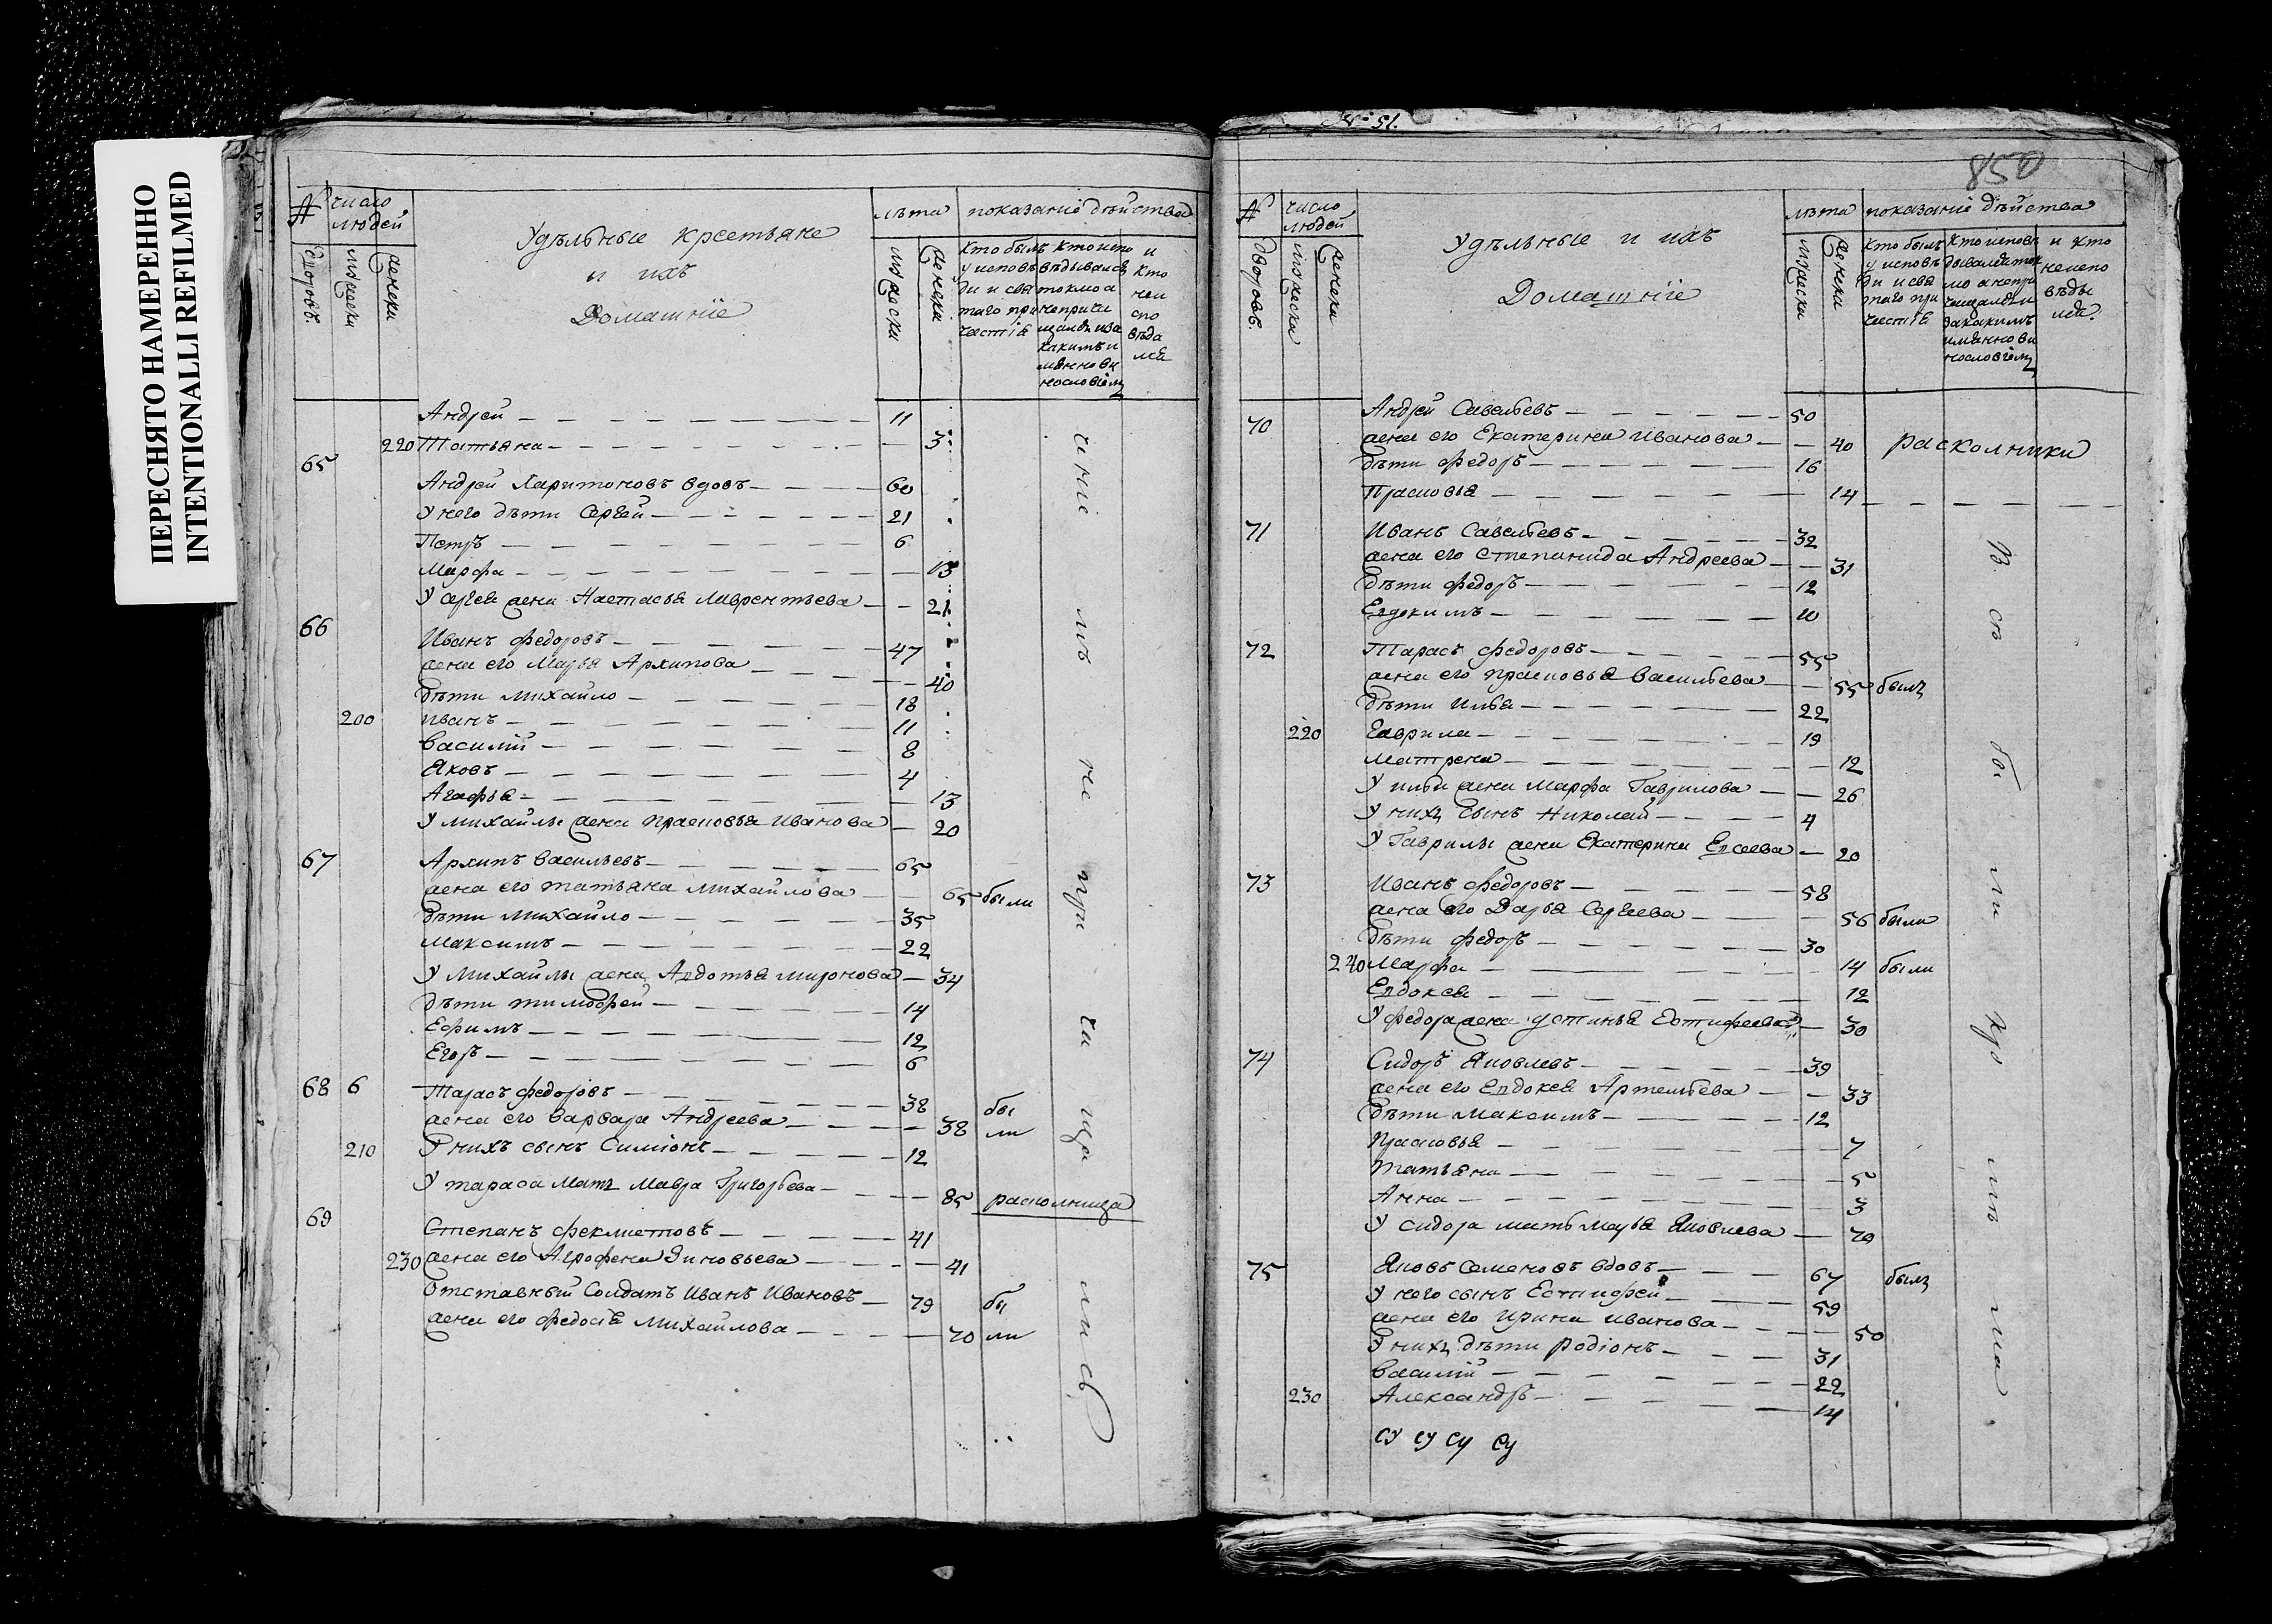 ПЕРЕСНЯТО НАМЕРЕННО
INTENTIONALLI REFILMED
№ число людей
дворовъ мужески женски
Удѣльные крестьяне
и ихъ
Домашніе
лѣта показаніе дѣйства
мужески женски
кто былъ у исповѣди и святаго причастіѧ
кто исповѣдывался токмо а непричищался и за какимъ именно винословіемъ
и кто неисповѣдался
Андрей — 11
220 Татьяна — 3
65
Андрей Харитоновъ вдовъ — 60
У него дѣти Сергей — 21
Петръ — 6
Марфа — 13
У Сергея жена Настасья Лаврентьева — 21
66
Иванъ Федоровъ — 47
жена его Марья Архипова — 40
дѣти Михайло — 18
200 Иванъ — 11
Василій — 8
Яковъ — 4
Агафья — 13
У Михайлы жена Прасковья Иванова — 20
67 Архипъ Васильевъ — 65
жена его Татьяна Михайлова — 65 были
дѣти Михайло — 35
Максимъ — 22
У Михайлы жена Авдотья Миронова — 34
дѣти Тимофей — 14
Ефимъ — 12
Егоръ — 6
68 6 Тарасъ Федоровъ — 38 бы
жена его Варвара Андреева — 38 ли
210 У нихъ сынъ Симіонъ — 12
У Тараса мать Мавра Григорьева — 85 расколница
69
Степанъ Феклистовъ — 41
230 жена его Агрофена Зиновьева — 41
Отставный Солдатъ Иванъ Ивановъ — 79 бы
жена его Федосія Михайлова — 70 ли
№ 51.
850
№ число людей
дворовъ мужески женски
Удѣльные и ихъ
Домашніе
лѣта показаніе дѣйства
мужески женски
кто былъ у исповѣди и святаго причастіѧ
кто исповѣдывался токмо а непричищался и за какимъ именно винословіемъ
и кто неисповѣдылся.
70 Андрей Савельевъ — 50
жена его Екатерина Иванова — 40 расколники
дѣти Федоръ — 16
Прасковья — 14
71 Иванъ Савельевъ — 32
жена его Степанида Андреева — 31
дѣти Федоръ — 12
Евдокимъ — 10
72 Тарасъ Федоровъ — 55
жена его Прасковья Васильева — 55 былъ
дѣти Илья — 22
220 Гаврила — 19
Матрена — 12
У Ильи жена Марфа Гаврилова — 26
У нихъ сынъ Николай — 4
У Гаврилы жена Екатерина Евсеева — 20
73 Иванъ Федоровъ — 58
жена его Дарья Сергеева — 56 были
дѣти Федоръ — 30
240 Марфа — 14 были
Евдокея — 12
У Федора жена Устинья Естифеева — 30
74 Сидоръ Яковлевъ — 39
жена его Евдокея Артемьева — 33
дѣти Максимъ — 12
Прасковья — 7
Татьяна — 5
Анна — 3
У Сидора мать Марья Яковлева — 70
75 Яковъ Семеновъ вдовъ — 67 былъ
У него сынъ Естифей — 59
жена его Ирина Иванова — 50
У нихъ дѣти Родіонъ — 31
Василій — 22
230 Александръ — 14
су су су су